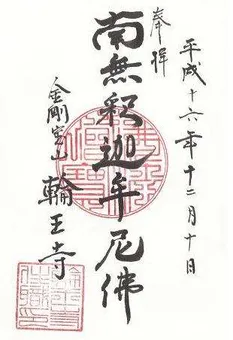 平成十六年十二月十日
奉拝
南無釈迦牟尼佛
金剛宝山
輪王寺